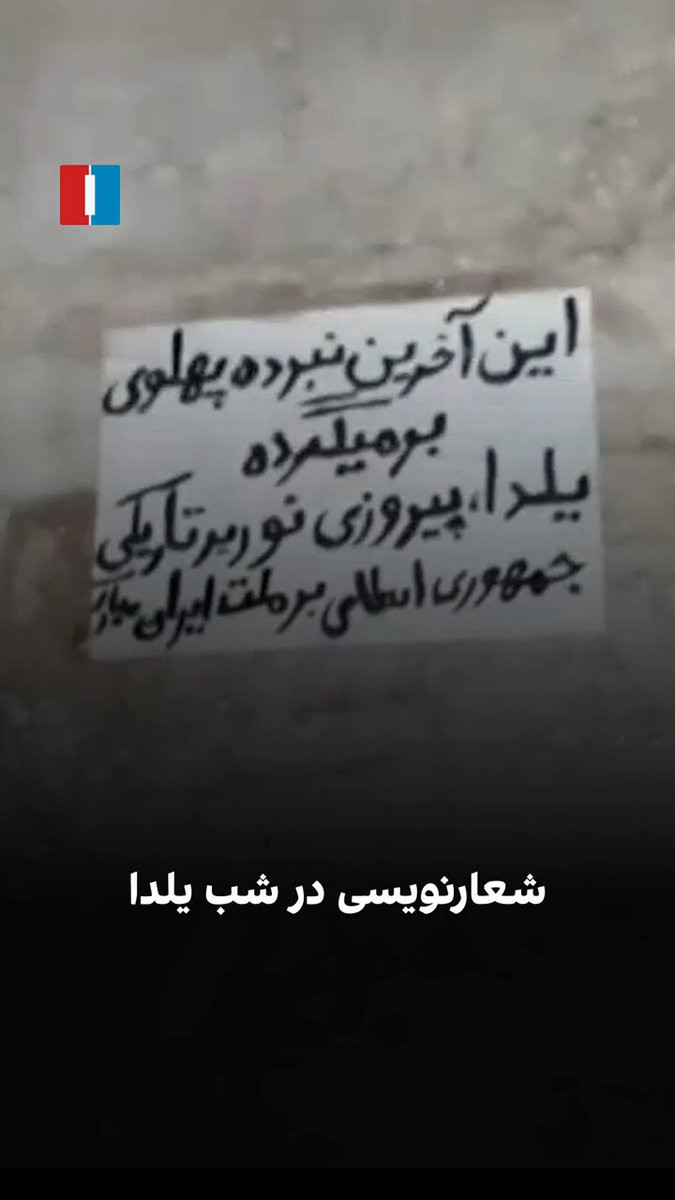 این آخرین نبرده پهلوی
برمیگرده
یلدا، پیروزی نور بر تاریکی
جمهوری اسلامی بر ملت ایران مبارک
شعارنویسی در شب یلدا